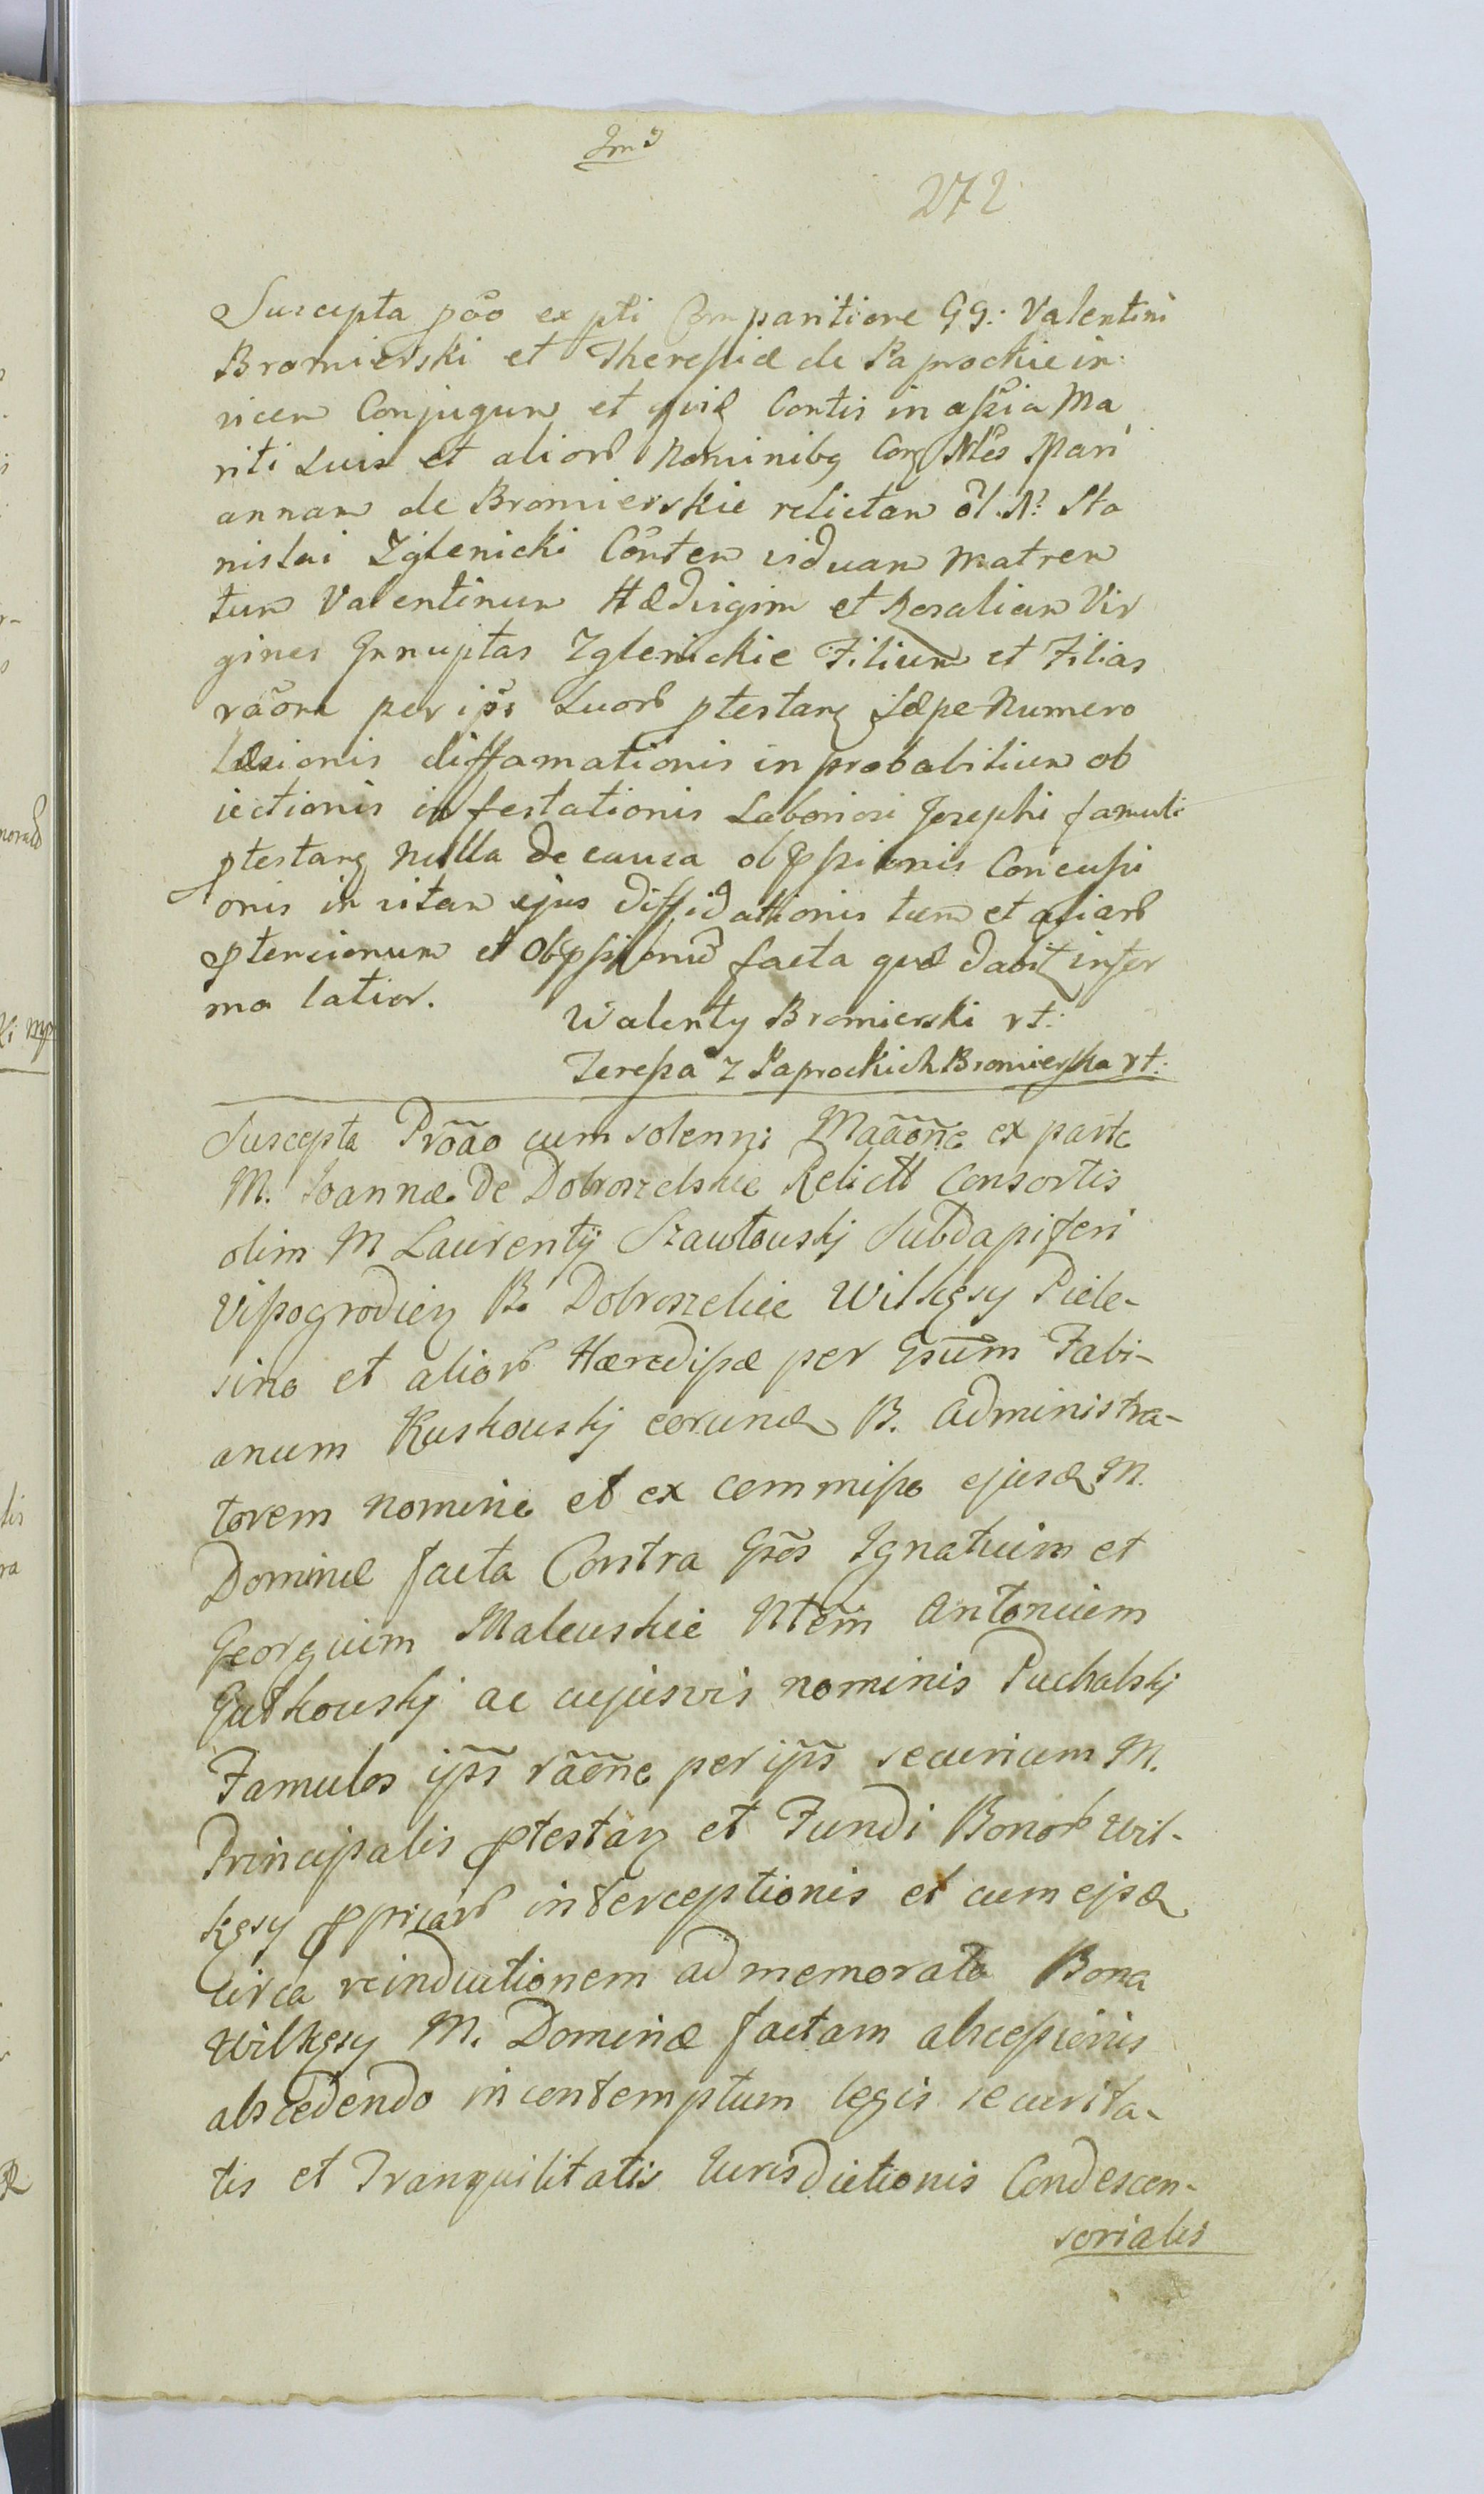 272
Suscepta põo ex pti Comparitione GG: Valentini
Bromierski et Theressiæ de Paprockie in
vicem Conjugum et quidē Contis in assia Ma
riti sui et aliorb Nominibq Conz Nles Mari
annam de Bromierskie relictam õl. N: Sta
nislai Zglenicki Contem viduam Matrem
tum Valentinum Hædvigim et Rosaliam Vir
gines Innuptas Zglenickie Filium et Filias
rãone per ip̃s suorb ptestanz sæpe Numero
Læsionis diffamationis inprobabilium ob
iectionis infestationis Laboriosi Josephi famuli
ptestanz Nulla de causa obpssionis Concussi
onis in vitam ejus diffidationis tum et aliarb
ptensionum et obpssionũ facta quæ dabit infor
ma latior.
Walenty Bromierski rt:
Teressa z Paprockich Bromierska rt:
Suscepta Prõão cum solenni Mãõne ex parte
M. Joannæ de Dobroszelskie Relictæ Consortis
olim M Laurentij Szawłouskj Subdapiferi
Vissogrodien B. Dobroszelice Wilkęsy Piele-
sino et aliorb Hæredissæ per Gsũm Fabi-
anum Kuskouskj eorund B. Administra-
torem nomine et ex commisso ejusd M.
Dominæ facta Contra Gsõs Ignatium et
Georgium Maleuskie Ntẽm Antonium
Gutkouskj ac cujusvis nominis Puchalskj
Famulos ip̃s rãõne per ip̃s securium M.
Principalis ptestanz et Fundi Bonorb Wil-
kęsy ppriarb interceptionis et cum ejsd
circa reinductionem ad memorata Bona
Wilkęsy M. Dominæ factam abscessionis
abscedendo in contemptum legis securita-
tis et Tranquilitatis Iurisdictionis Condescen-
sorialis